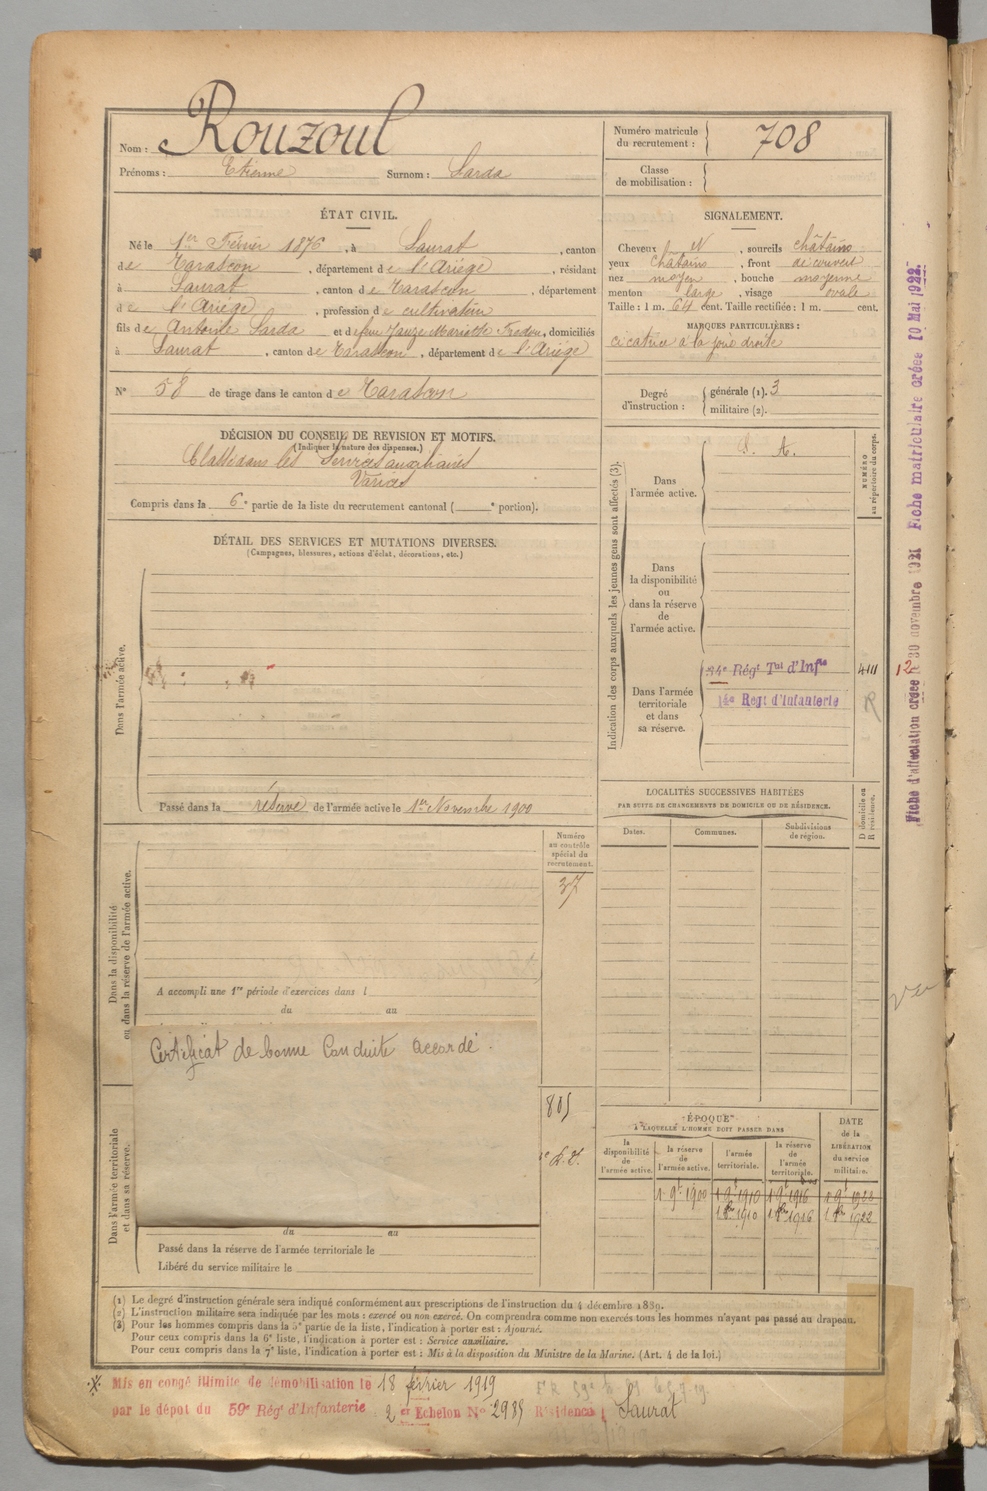 Nom : Rouzoul
Prénoms : Etienne Surnom : Sarda
Numéro matricule du recrutement : 708
Classe de mobilisation :
ÉTAT CIVIL.
Né le 1er Février 1876, à Saurat, canton
de Tarascon, département de l'Ariège, résidant
à Saurat, canton de Tarascon, département
de l'Ariège, profession de cultivateur
fils de Antoine Sarda et de feue Jauze Mariette Fredou, domiciliés
à Saurat, canton de Tarascon, département de l'Ariège
N° 58 de tirage dans le canton de Tarascon
SIGNALEMENT.
Cheveux N, sourcils châtains
yeux châtains, front découvert
nez moyen, bouche moyenne
menton large, visage ovale
Taille : 1 m. 64 cent. Taille rectifiée : 1 m. cent.
MARQUES PARTICULIÈRES :
cicatrice à la joue droite
Degré d'instruction : générale (1). 3
militaire (2).
DÉCISION DU CONSEIL DE REVISION ET MOTIFS.
(Indiquer la nature des dispenses.)
Classé dans les services auxiliaires
Varices
Compris dans la 6e partie de la liste du recrutement cantonal ( e portion).
DÉTAIL DES SERVICES ET MUTATIONS DIVERSES.
(Campagnes, blessures, actions d'éclat, décorations, etc.)
Dans l'armée active.
Passé dans la réserve de l'armée active le 1er Novembre 1900
Indication des corps auxquels les jeunes gens sont affectés (3).
NUMÉRO au répertoire du corps.
Dans l'armée active.
S. A.
Dans la disponibilité ou dans la réserve de l'armée active.
Dans l'armée territoriale et dans sa réserve.
Régt Tal d'Infie 4111 12
Régt d'Infanterie R
Fiche d'affectation créée le 30 novembre 1921 Fiche matriculaire créée 10 Mai 1922.
LOCALITÉS SUCCESSIVES HABITÉES
PAR SUITE DE CHANGEMENTS DE DOMICILE OU DE RÉSIDENCE.
Dates. Communes. Subdivisions de région.
D domicile ou R résidence.
Dans la disponibilité ou dans la réserve de l'armée active.
Numéro au contrôle spécial du recrutement.
37
A accompli une 1re période d'exercices dans l
du au
Certificat de bonne Conduite accordé.
Vu
Dans l'armée territoriale et dans sa réserve.
805
du au
Passé dans la réserve de l'armée territoriale le
Libéré du service militaire le
ÉPOQUE
À LAQUELLE L'HOMME DOIT PASSER DANS
la disponibilité de l'armée active.
la réserve de l'armée active.
l'armée territoriale.
la réserve de l'armée territoriale.
DATE de la LIBÉRATION du service militaire.
1 9t 1900 1 9t 1910 1 9t 1916 1 9t 1922
1 8bre 1910 1 8bre 1916 1 8bre 1922
(1) Le degré d'instruction générale sera indiqué conformément aux prescriptions de l'instruction du 4 décembre 1889.
(2) L'instruction militaire sera indiquée par les mots : exercé ou non exercé. On comprendra comme non exercés tous les hommes n'ayant pas passé au drapeau.
(3) Pour les hommes compris dans la 5e partie de la liste, l'indication à porter est : Ajourné.
Pour ceux compris dans la 6e liste, l'indication à porter est : Service auxiliaire.
Pour ceux compris dans la 7e liste, l'indication à porter est : Mis à la disposition du Ministre de la Marine. (Art. 4 de la loi.)
Mis en congé illimité de démobilisation le 18 février 1919
par le dépôt du 59e Régt d'Infanterie 2e Echelon N° 2985 Résidence : Saurat